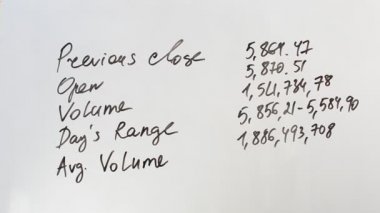 Previous close 5,864.47
Open 5,870.51
Volume 1,541,734,78
Day's Range 5,856,21-5,584,90
Avg. Volume 1,886,493,708